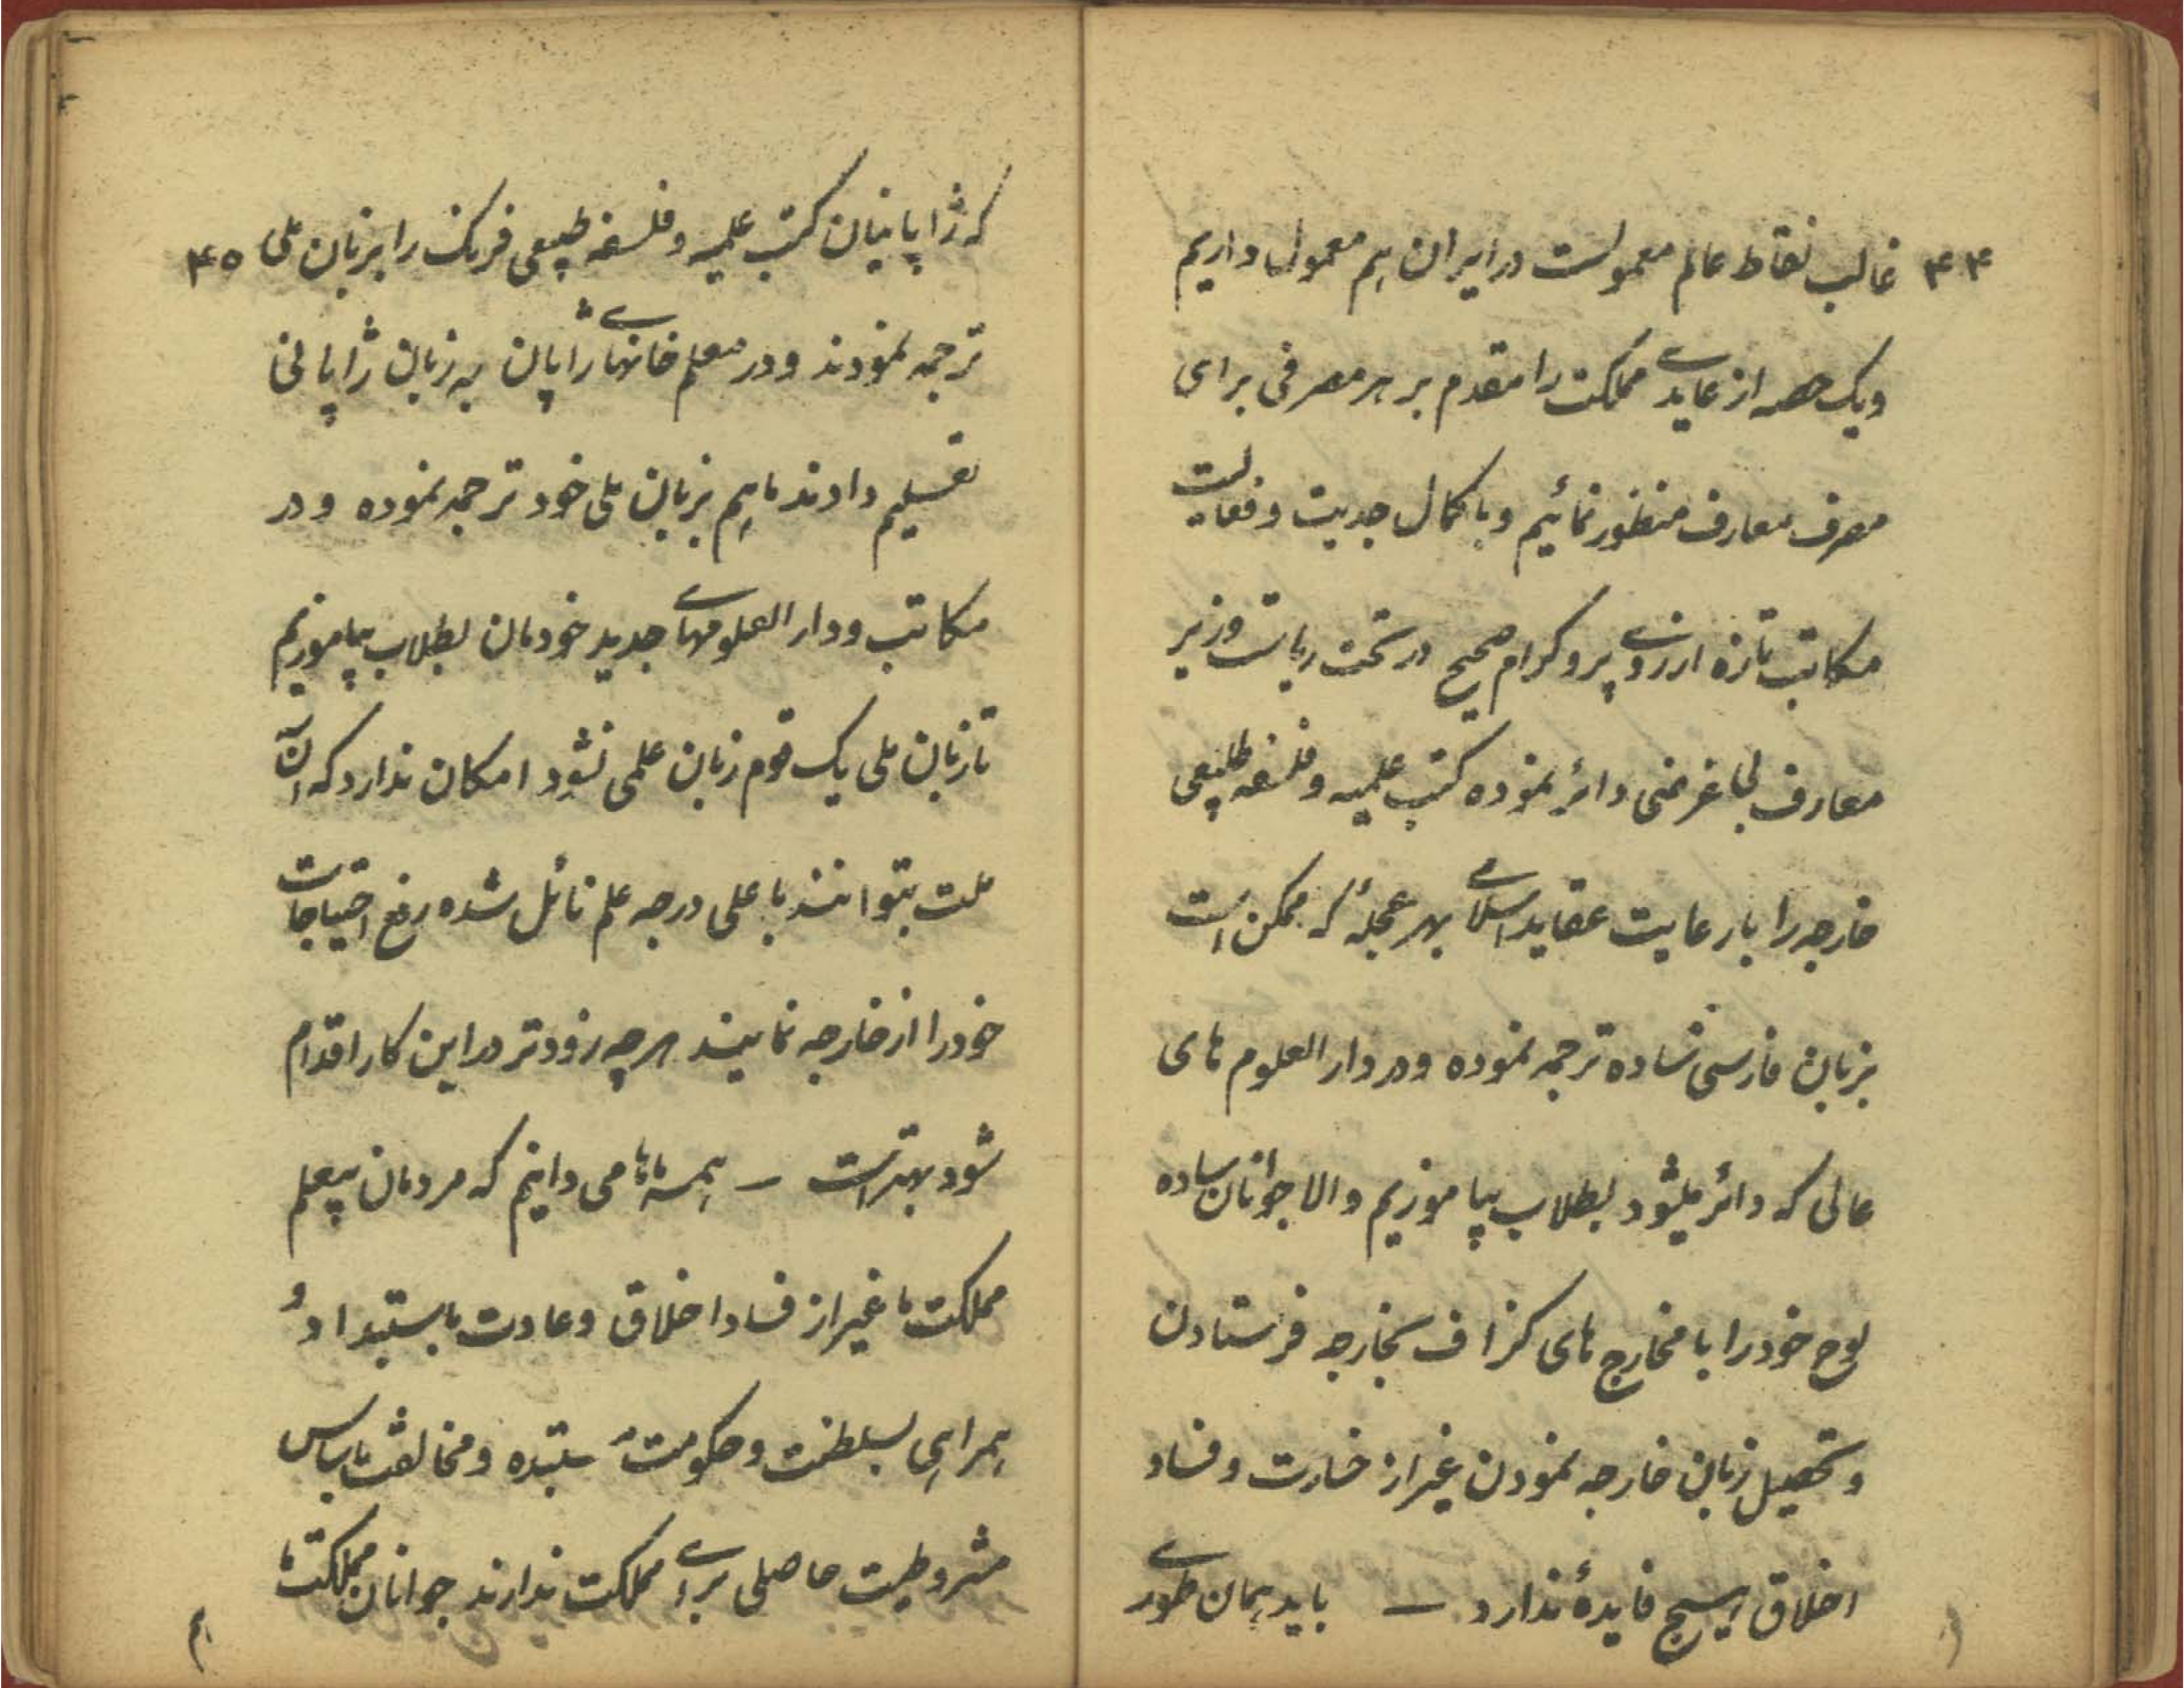 ۴۴ غالب نقاط عالم معمولست در ایران هم معمول داریم
ویک حصه از عایدی مملکت را مقدم بر هر مصرفی برای
مصرف معارف منظور نمائیم و با کمال جدیت و فعالیت
مکاتب تازه از روی پروگرام صحیح در تحت ریاست وزیر
معارف بی غرضی دائر نموده کتب علمیه و فلسفه طبیعی
خارجه را با رعایت عقاید اسلامی بهر عجلهٔ که ممکن است
بزبان فارسی ساده ترجمه نموده و در دارالعلوم های
عالی که دائر میشود بطلاب بیاموزیم والا جوانان ساده
لوح خود را با مخارج های گزاف بخارجه فرستادن
و تحصیل زبان خارجه نمودن غیر از خسارت و فساد
اخلاق هیچ فایدهٔ ندارد — باید همان طوری
که ژاپانیان کتب علمیه و فلسفه طبیعی فرنک را بزبان ملی ۴۵
ترجمه نمودند و در معلم خانهای ژاپان به زبان ژاپانی
تعلیم دادند ما هم بزبان ملی خود ترجمه نموده و در
مکاتب و دارالعلومهای جدید خودمان بطلاب بیاموزیم
تا زبان ملی یک قوم زبان علمی نشود امکان ندارد که آن
ملت بتوانند باعلی درجه علم نائل شده رفع احتیاجات
خود را از خارجه نمایند هرچه زودتر در این کار اقدام
شود بهتر است — همه ما می دانیم که مردمان بیعلم
مملکت ما غیر از فساد اخلاق و عادت باستبداد و
همراهی بسلطنت و حکومت مستبده و مخالفت باساس
مشروطیت حاصلی برای مملکت ندارند جوانان مملکت ما